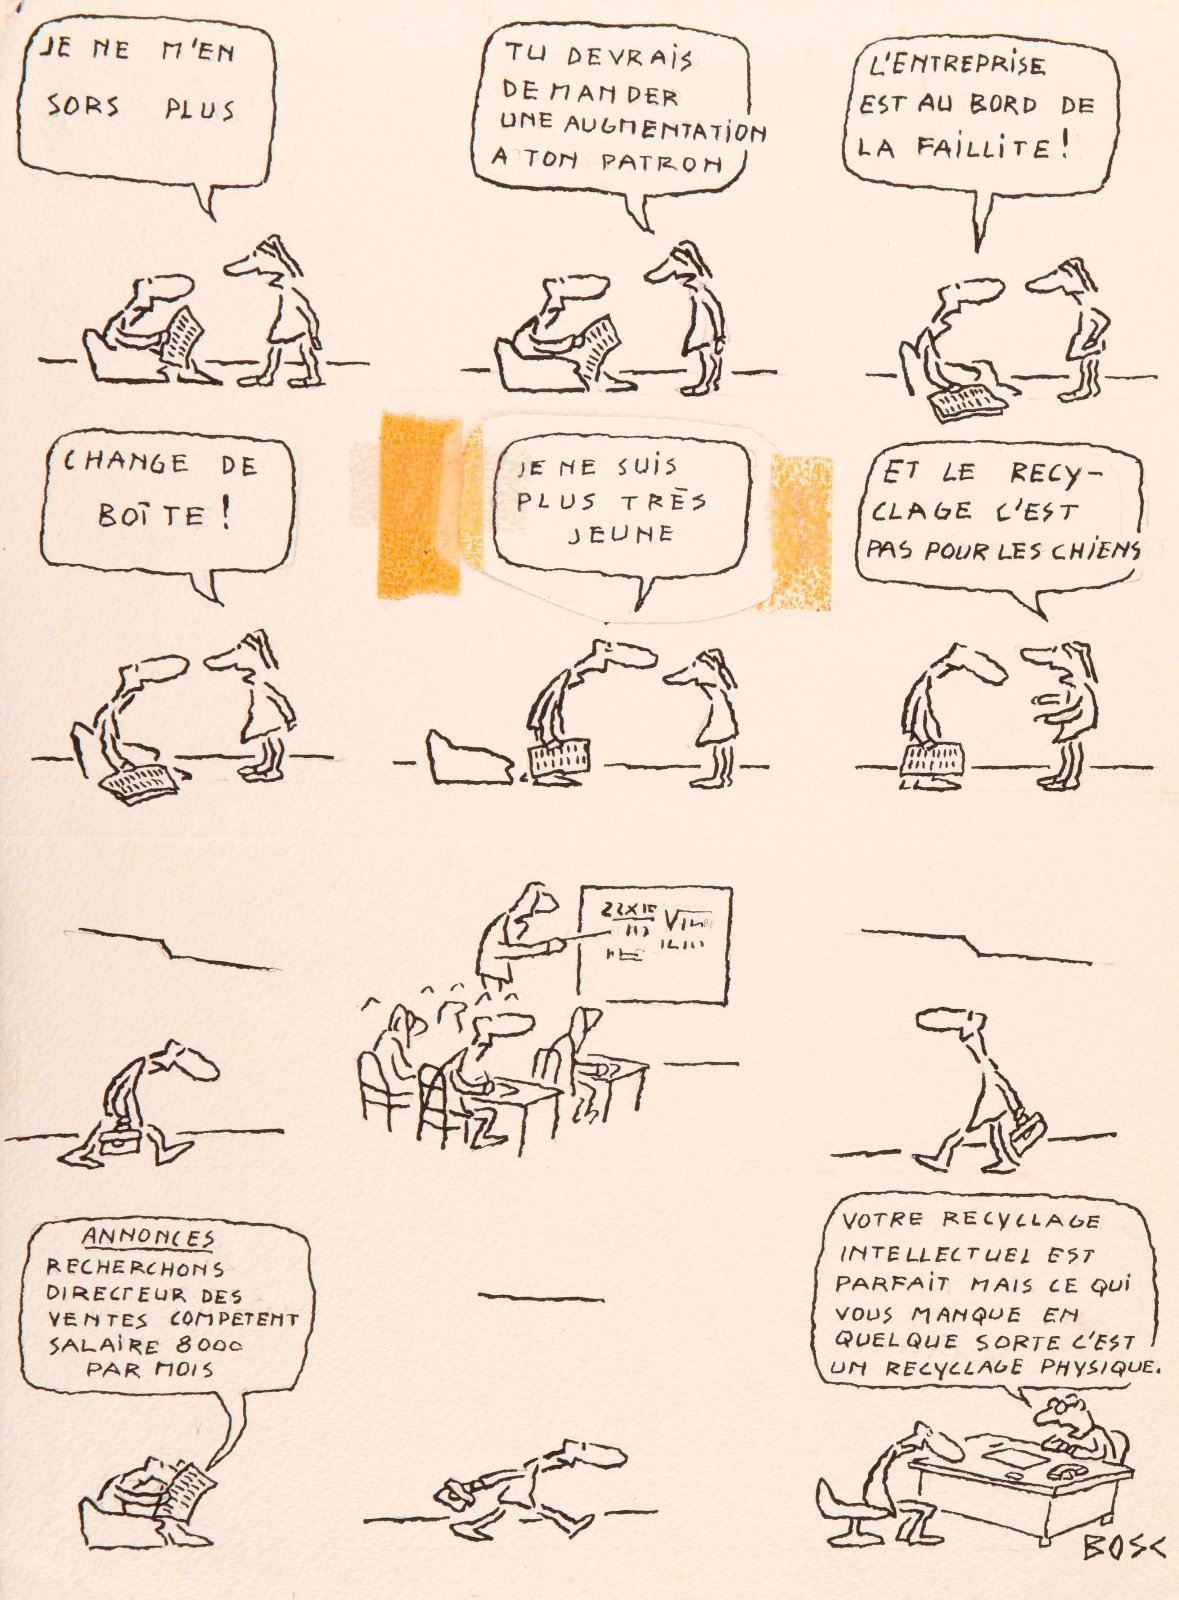 JE NE M'EN
SORS PLUS
TU DEVRAIS
DEMANDER
UNE AUGMENTATION
A TON PATRON
L'ENTREPRISE
EST AU BORD DE
LA FAILLITE!
CHANGE DE
BOÎTE!
JE NE SUIS
PLUS TRÈS
JEUNE
ET LE RECY-
CLAGE C'EST
PAS POUR LES CHIENS
ANNONCES
RECHERCHONS
DIRECTEUR DES
VENTES COMPETENT
SALAIRE 8000
PAR MOIS
VOTRE RECYCLAGE
INTELLECTUEL EST
PARFAIT MAIS CE QUI
VOUS MANQUE EN
QUELQUE SORTE C'EST
UN RECYCLAGE PHYSIQUE.
BOSC